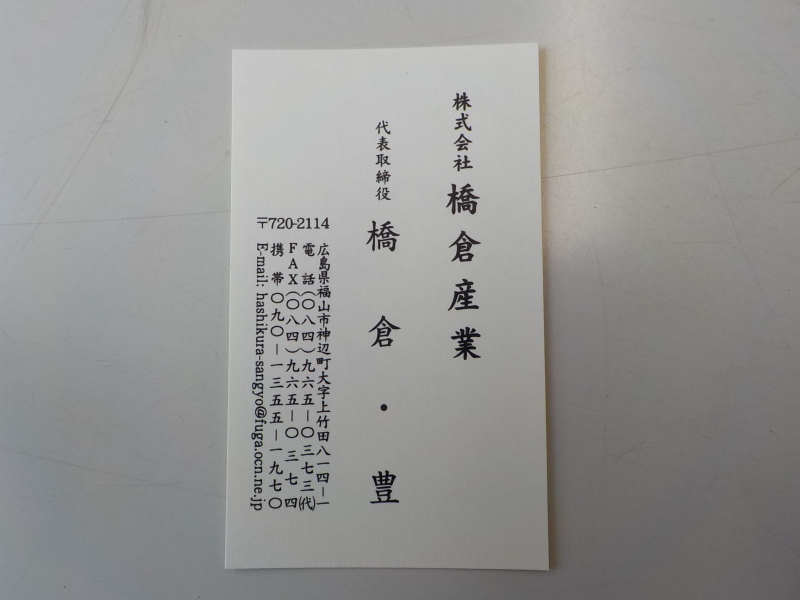 株式会社 橋倉産業
代表取締役 橋倉・豊
〒720-2114
広島県福山市神辺町大字上竹田八一四－一
電話(〇八四)九六五－〇三七三(代)
FAX(〇八四)九六五－〇三七四
携帯〇九〇－一三五五－一九七〇
E-mail: hashikura-sangyo@fuga.ocn.ne.jp